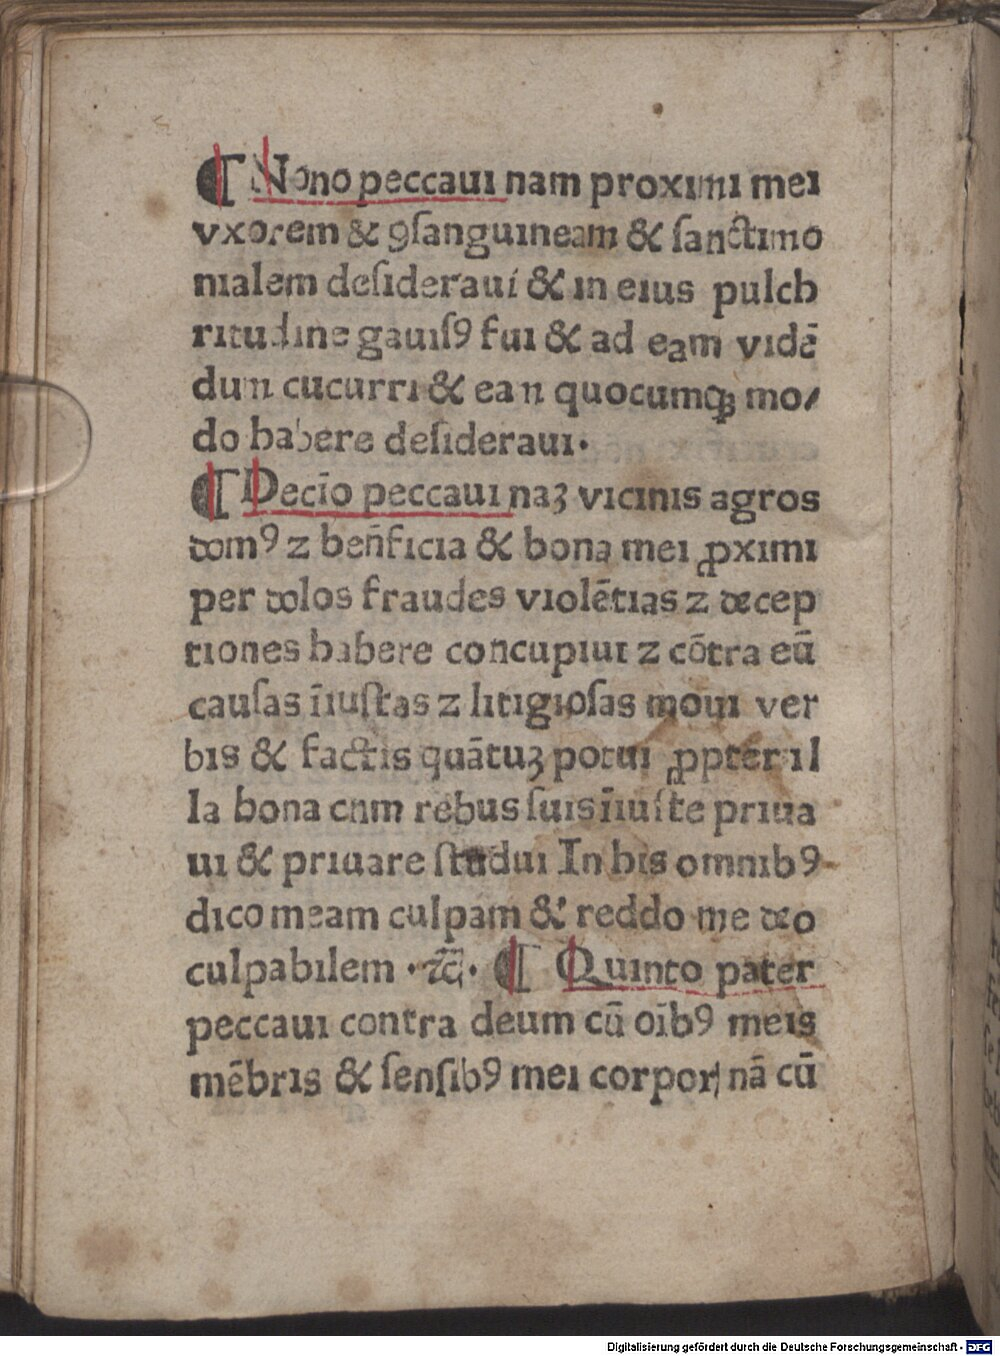 ¶ Nono peccaui nam proximi mei
vxorem & ꝯſanguineam & ſanctimo
nialem deſideraui & in eius pulch
ritudine gauiſꝰ fui & ad eam vidē
dum cucurri & ean quocumqꝫ mo/
do habere deſideraui·
¶ Decīo peccaui naꝫ vicinis agros
domꝰ ⁊ ben̄ficia & bona mei ꝓximi
per dolos fraudes violētias ⁊ decep
tiones habere concupiui ⁊ cōtra eū
cauſas īiuſtas ⁊ litigioſas moui ver
bis & factis quātuꝫ potui ꝓpter il
la bona cnm rebus ſuis īiuſte priua
ui & priuare ſtudui In his omnibꝰ
dico meam culpam & reddo me deo
culpabilem · ⁊c̄· ¶ Quinto pater
peccaui contra deum cū oībꝰ meis
mēbris & ſenſibꝰ mei corporꝭ nā cū
Digitalisierung gefördert durch die Deutsche Forschungsgemeinschaft - DFG